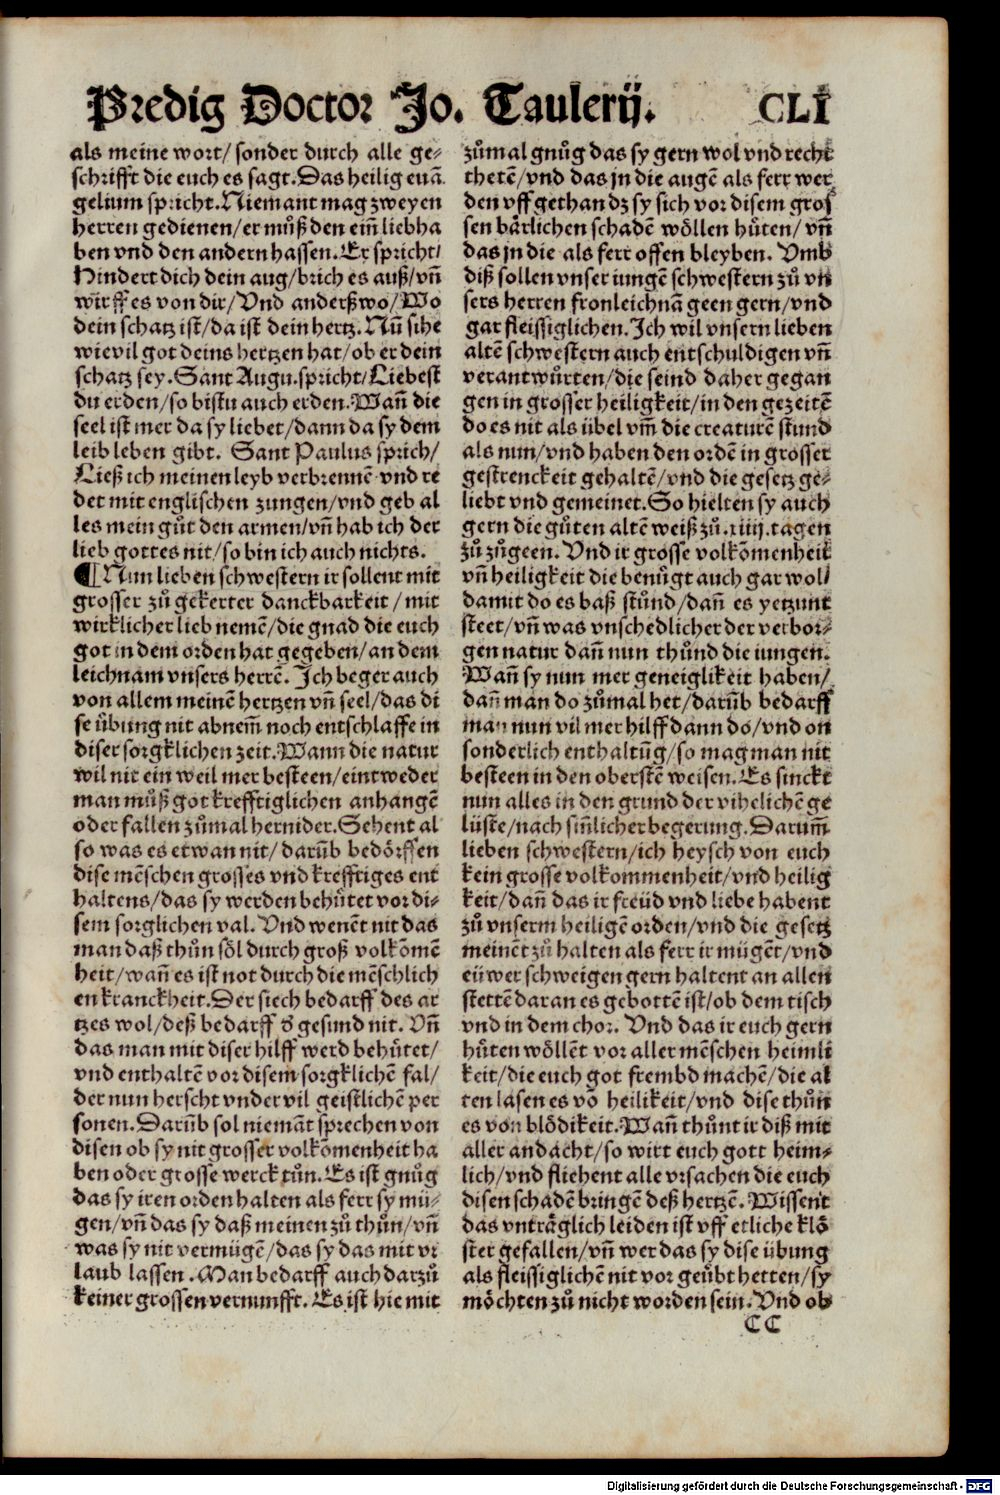 Predig Doctor Jo. Taulerij. CLI
als meine wort/ sonder durch alle ge⸗
schrifft die euch es sagt. Das heilig euā
gelium spricht. Niemant mag zweyen
herren gedienen/ er můß den eim̄ liebha
ben vnd den andern hassen. Er spricht/
Hindert dich dein aug/ brich es auß/ vn̄
wirff es von dir/ Vnd anderßwo/ Wo
dein schatz ist/ da ist dein hertz. Nū sihe
wievil got deins hertzen hat/ ob er dein
schatz sey. Sant Augu. spricht/ Liebest
du erden/ so bistu auch erden. Wan̄ die
seel ist mer da sy liebet/ dann da sy dem
leib leben gibt. Sant Paulus sprich/
Ließ ich meinen leyb verbrennē vnd re
det mit englischen zungen/ vnd geb al
les mein gůt den armen/ vn̄ hab ich der
lieb gottes nit/ so bin ich auch nichts.
¶ Nun lieben schwestern ir sollent mit
grosser zů gekerter danckbarkeit/ mit
wirklicher lieb nemē/ die gnad die euch
got in dem orden hat gegeben/ an dem
leichnam vnsers herrē. Ich beger auch
von allem meinē hertzen vn̄ seel/ das di
se übung nit abnem̄ noch entschlaffe in
diser sorgklichen zeit. Wann die natur
wil nit ein weil mer besteen/ eintweder
man můß got krefftiglichen anhangē
oder fallen zůmal hernider. Sehent al
so was es etwan nit/ darūb bedörffen
dise mēschen grosses vnd krefftiges ent
haltens/ das sy werden behůtet vor di⸗
sem sorglichen val. Vnd wenēt nit das
man daß thůn söl durch groß volkōmē
heit/ wan̄ es ist not durch die mēschlich
en kranckheit. Der siech bedarff des ar
tzes wol/ deß bedarff d' gesund nit. Vn̄
das man mit diser hilff werd behůtet/
vnd enthaltē vor disem sorgklichē fal/
der nun herscht vnder vil geistlichē per
sonen. Darūb sol niemāt sprechen von
disen ob sy nit grosser volkōmenheit ha
ben oder grosse werck tůn. Es ist gnůg
das sy iren orden halten als ferr sy mü⸗
gen/ vn̄ das sy daß meinen zů thůn/ vn̄
was sy nit vermügē/ das sy das mit vr
laub lassen. Man bedarff auch darzů
keiner grossen vernunfft. Es ist hie mit
zůmal gnůg das sy gern wol vnd recht
thetē/ vnd das jn die augē als ferr wer
den vff gethan dz sy sich vor disem gros
sen bärlichen schadē wöllen hůten/ vn̄
das jn die als ferr offen bleyben. Vmb
diß sollen vnser iungē schwestern zů vn
sers herren fronleichnā geen gern/ vnd
gar fleissiglichen. Ich wil vnsern lieben
altē schwestern auch entschuldigen vn̄
verantwürten/ die seind daher gegan
gen in grosser heiligkeit/ in den gezeitē
do es nit als übel vm̄ die creaturē stund
als nun/ vnd haben den ordē in grosser
gestrenckeit gehaltē/ vnd die gesetz ge⸗
liebt vnd gemeinet. So hielten sy auch
gern die gůten altē weiß zů .xiiij. tagen
zů zůgeen. Vnd ir grosse volkōmenheit
vn̄ heiligkeit die benůgt auch gar wol/
damit do es baß stůnd/ dan̄ es yetzunt
steet/ vn̄ was vnschedlicher der verbor⸗
gen natur dan̄ nun thůnd die iungen.
Wan̄ sy nun mer geneiglikeit haben/
dan̄ man do zůmal het/ darūb bedarff
man nun vil mer hilff dann do/ vnd on
sonderlich enthaltūg/ so mag man nit
besteen in den oberstē weisen. Es sinckt
nun alles in den grund der vihelichē ge
lüste/ nach sin̄licher begerung. Darum̄
lieben schwestern/ ich heysch von euch
kein grosse volkommenheit/ vnd heilig
keit/ dan̄ das ir freüd vnd liebe habent
zů vnserm heiligē orden/ vnd die gesetz
meinēt zů halten als ferr ir mügēt/ vnd
eüwer schweigen gern haltent an allen
stettē daran es gebottē ist/ ob dem tisch
vnd in dem chor. Vnd das ir euch gern
hůten wöllēt vor aller mēschen heimli
keit/ die euch got frembd machē/ die al
ten lasen es vō heilikeit/ vnd dise thůn
es von blödikeit. Wan̄ thůnt ir diß mit
aller andacht/ so wirt euch gott heim⸗
lich/ vnd fliehent alle vrsachen die euch
disen schadē bringē deß hertzē. Wissent
das vnträglich leiden ist vff etliche klö
ster gefallen/ vn̄ wer das sy dise übung
als fleissiglichē nit vor geůbt hetten/ sy
möchten zů nicht worden sein. Vnd ob
CC
Digitalisierung gefördert durch die Deutsche Forschungsgemeinschaft - DFG